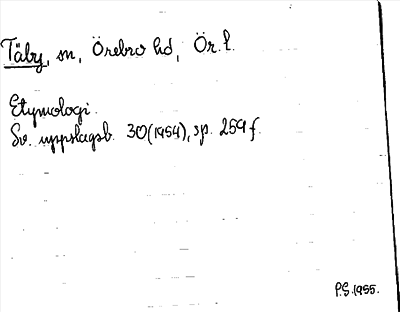 Täby, sn, Örebro hd, Ör. l.
Etymologi.
Sv. uppslagsb. 30(1954), sp. 259 f.
P.S. 1955.